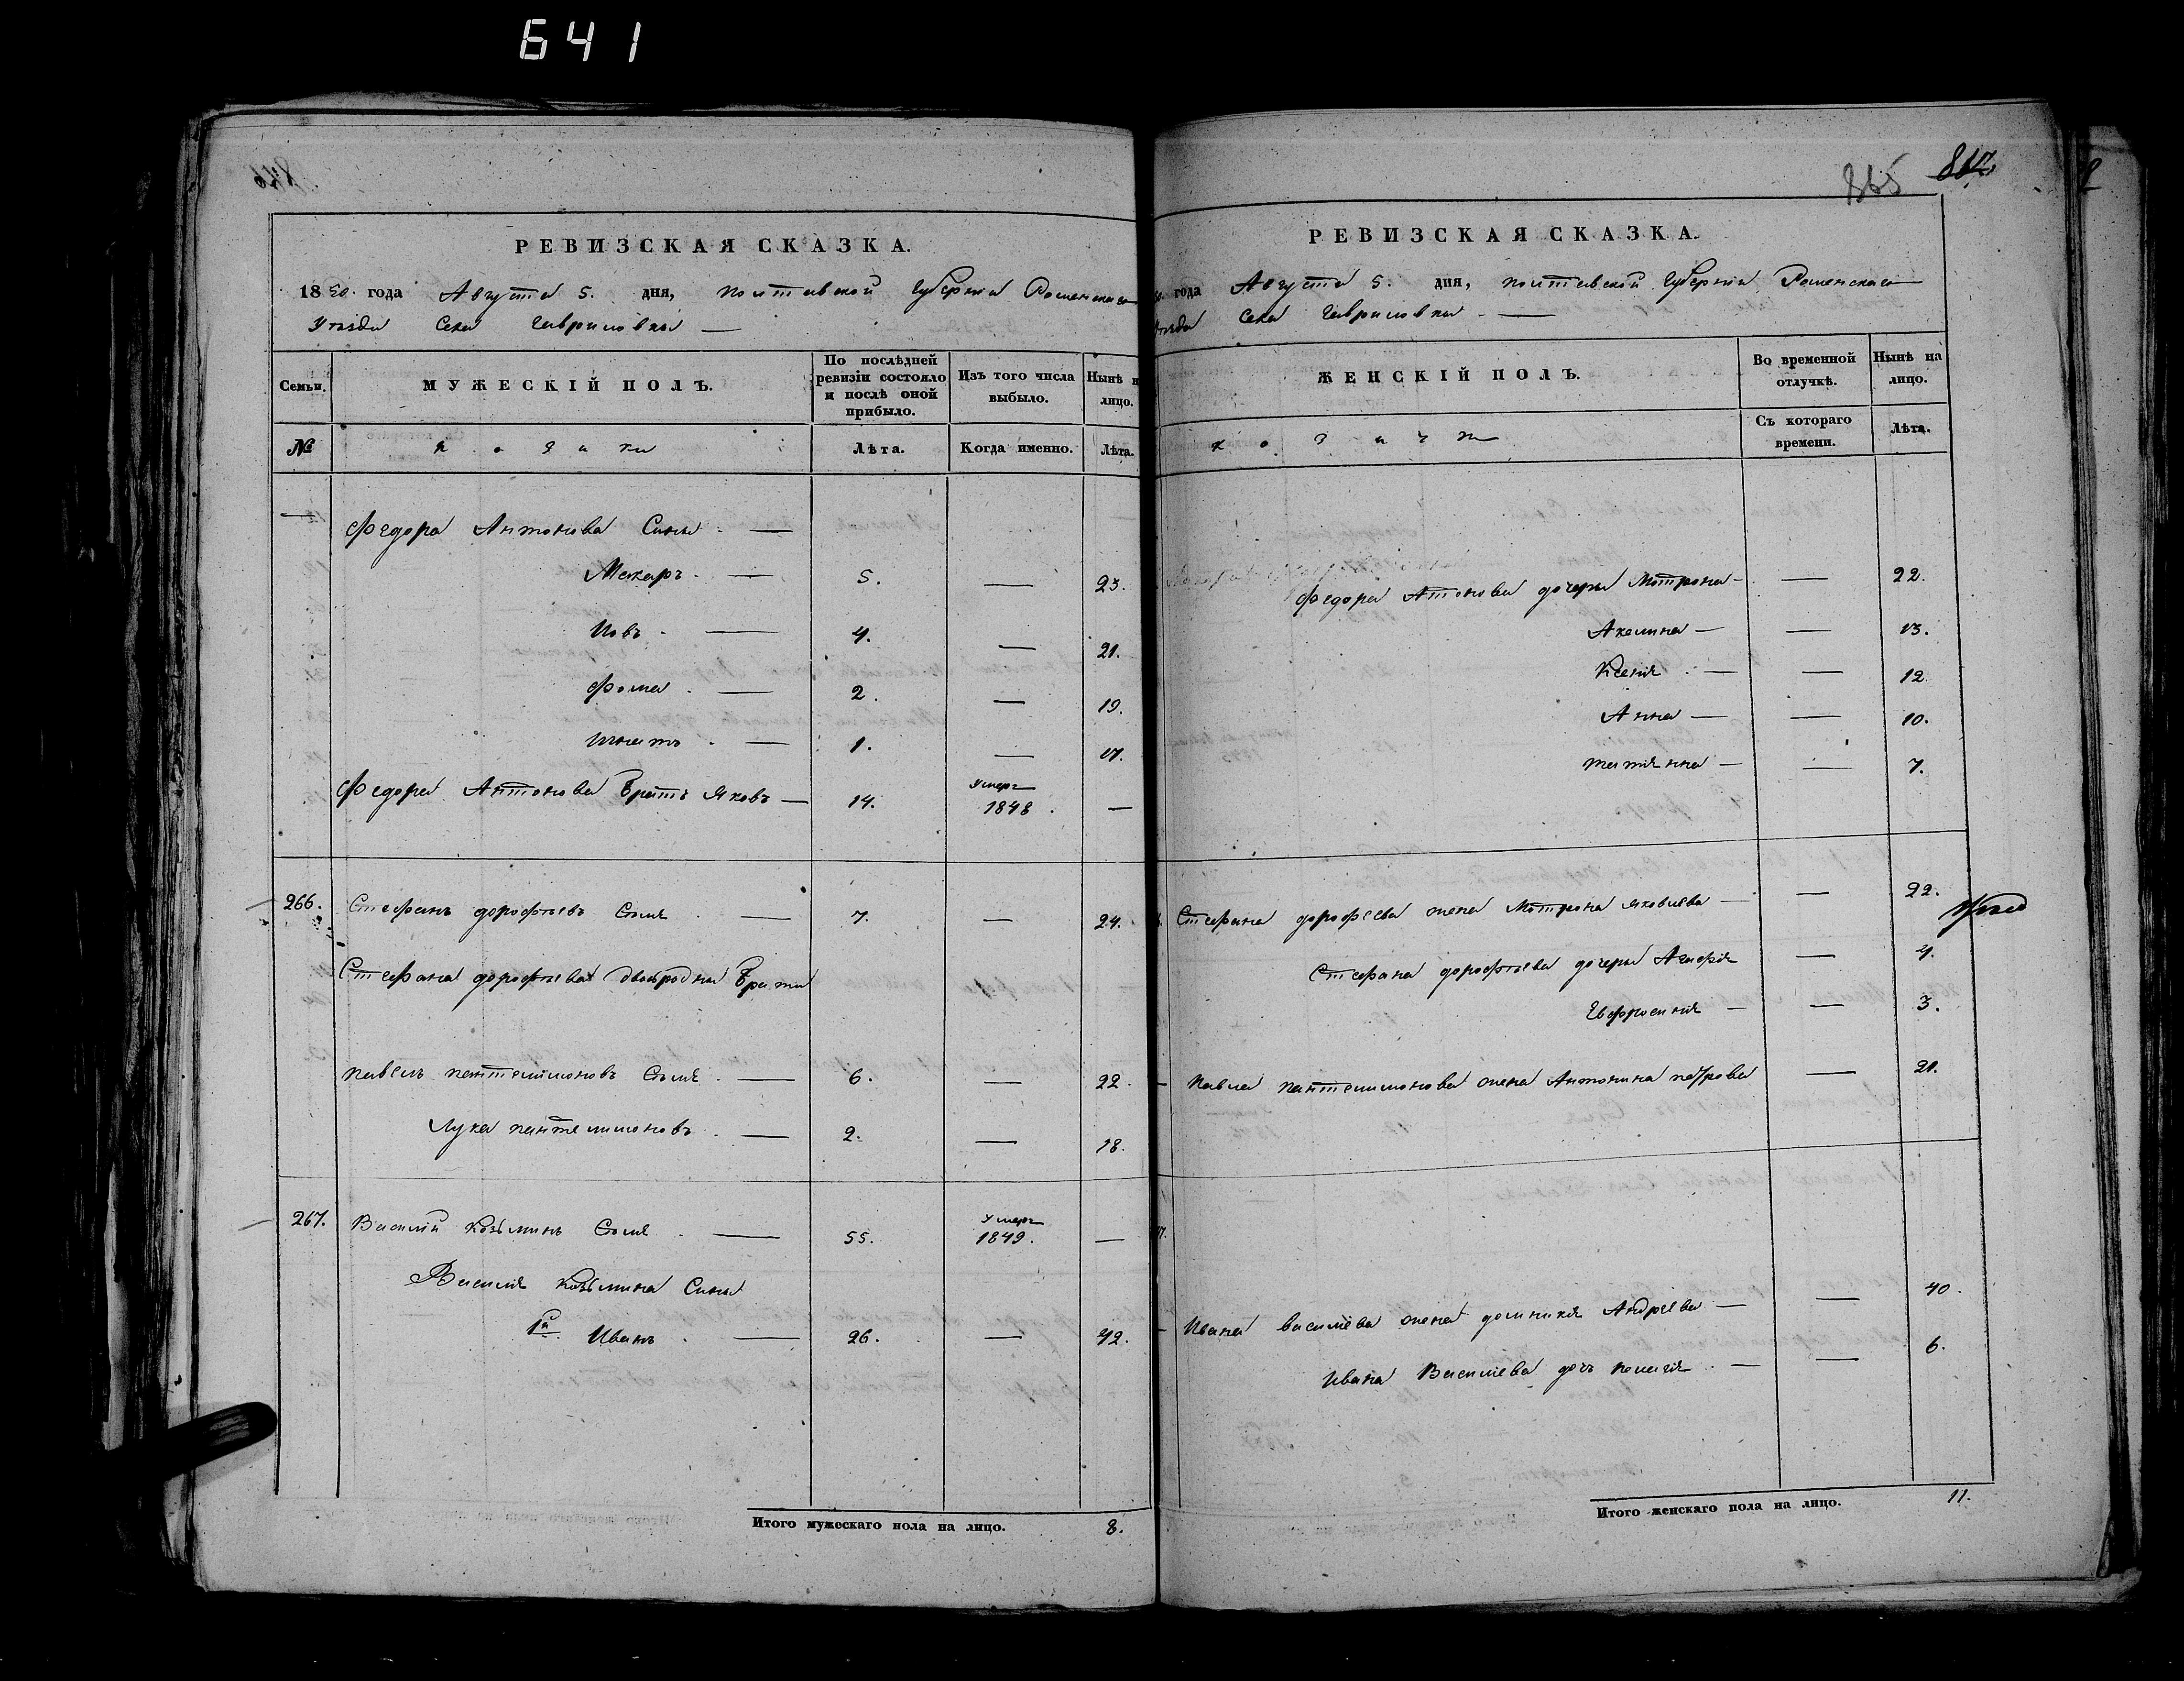 641
865 817
РЕВИЗСКАЯ СКАЗКА.
1850. года Августа 5. дня, Полтавской Губерніи Роменскаго
Уѣзда Села Гавриловки —
Семьи. МУЖЕСКІЙ ПОЛЪ. По послѣдней ревизіи состояло и послѣ оной прибыло. Изъ того числа выбыло. Нынѣ н лицо.
№ козаки Лѣта. Когда именно. Лѣта.
— Федора Антонова Сины —
Макаръ — 5. — 23.
Иовъ — 4. — 21.
Фома — 2. — 19.
Игнатъ — 1. — 17.
Федора Антонова Братъ Яковъ — 14. Умеръ 1848. —
266. Стефанъ дорофѣевъ — 7. — 24.
Стефана дорофѣева двоюродны Брати
павелъ пантелимоновъ — 6. — 22.
Лука пантелимоновъ — 2. — 18.
267. Василій козьминъ — 55. Умеръ 1849. —
Василия козьмина Сины
1й Иванъ — 26. — 42.
Итого мужескаго пола на лицо. 8.
РЕВИЗСКАЯ СКАЗКА.
года Августа 5. дня, полтавской Губерніи Роменскаго
Села Гавриловки —
ЖЕНСКІЙ ПОЛЪ. Во временной отлучкѣ. Нынѣ на лицо.
Съ котораго времени. Лѣта.
Федора Антонова дочеры Мотрона — — 22.
Акелина — — 13.
Ксенія — — 12.
Анна — — 10.
татіянна — — 7.
Стефана дорофеева жена Мотрона яковлева — — 22.
Стефана дорофѣева дочеры Агафія — 4.
Евфросинія — — 3.
— павла пантелимонова жена Антонина петрова — 21.
— Ивана василіева жена домникія Андреева — — 40.
Ивана Василіева дочъ пелагія — — 6.
Итого женскаго пола на лицо. 11.